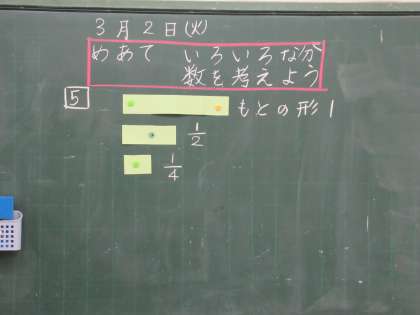 3月2日(火)
めあて いろいろな分
数を考えよう
5 もとの形 1
1/2
1/4